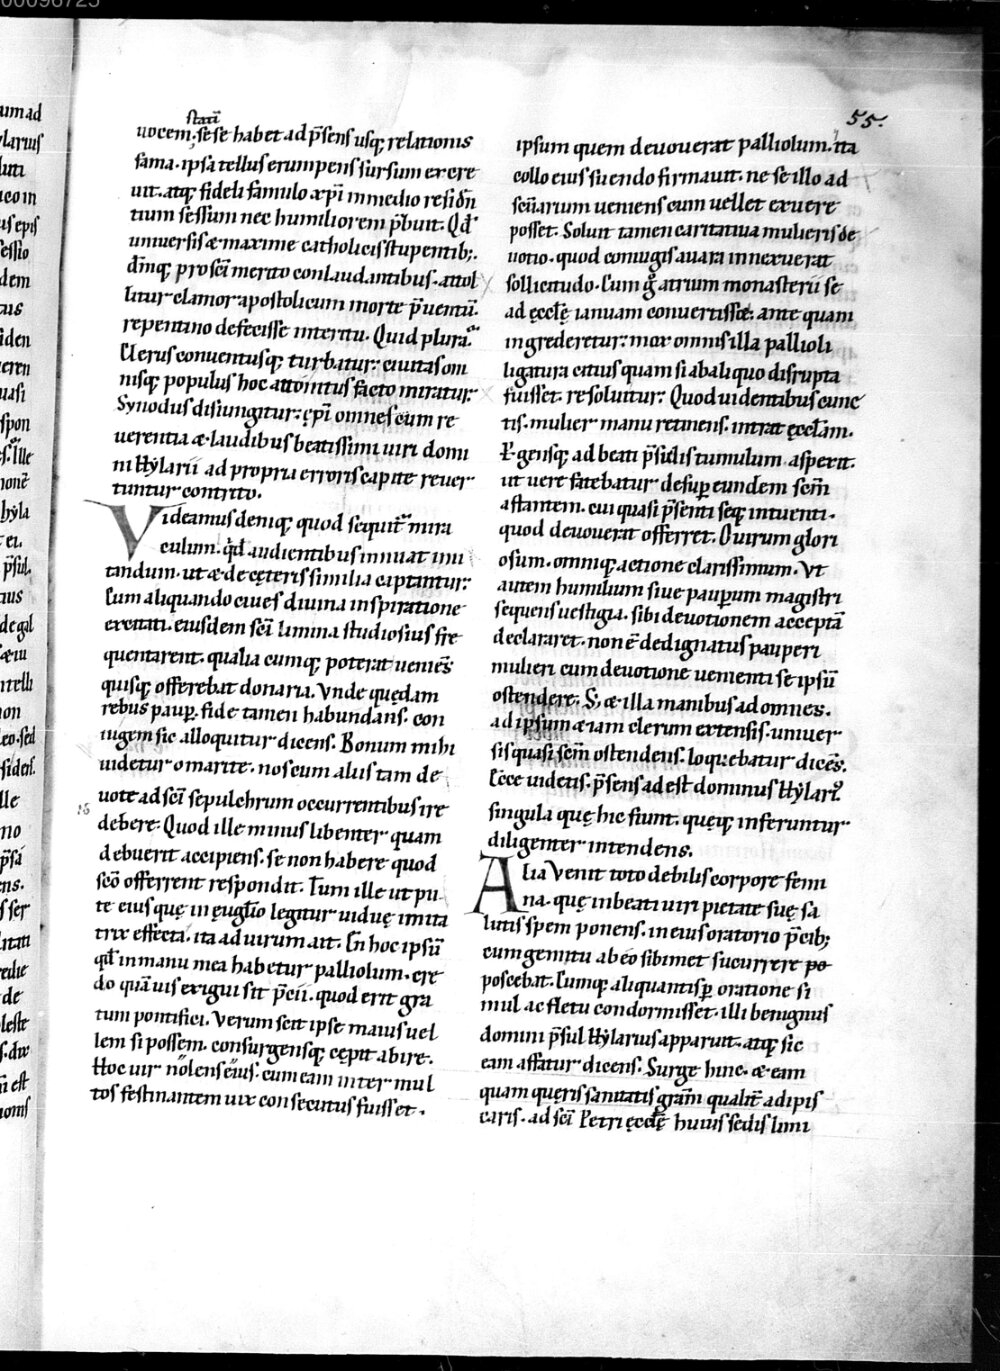 00098725
55.
statī
uocem, sese habet ad p̄sens usq; relationis
fama. ipsa tellus erumpens sursum excre
uit. atq; fideli famulo xp̄i in medio residn̄
tium sessum nec humiliorem p̄buit. Qd̄
uniuersis & maxime catholicis stupentib;.
dm̄q; pro sc̄i merito conlaudantibus. attol
litur clamor apostolicum morte p̄uentū.
repentino defecisse interitu. Quid plura.
Clerus conuentusq; turbatur: ciuitas om
nisq; populus hoc attonitus facto miratur:
Synodus disiungitur: ep̄i omnes cum re
uerentia & laudibus beatissimi uiri domi
ni Hẏlarii ad propria erroris capite reuer
tuntur contrito.
Videamus deniq; quod sequit̄ mira
culum. qd̄ audientibus innuat imi
tandum. ut & de cęteris similia captantur:
Cum aliquando ciues diuina inspiratione
excitati. eiusdem sc̄i limina studiosius fre
quentarent. qualia cumq; poterat ueniēs
quisq; offerebat donaria. Vnde quędam
rebus paup̱. fide tamen habundans. con
iugem sic alloquitur dicens. Bonum mihi
uidetur o marite. nos cum aliis tam de
uote ad sc̄i sepulchrum occurrentibus ire
debere. Quod ille minus libenter quam
debuerit accipiens. se non habere quod
sc̄o offerrent respondit. Tum ille ut pu
te eius quę in euglīo legitur uiduę imita
trix effecta. ita ad uirum ait. En hoc ipsū
qd̄ in manu mea habetur palliolum. cre
do quāuis exigui sit p̄cii. quod erit gra
tum pontifici. Verum scit ipse maius uel
lem si possem. consurgensq; cępit abire.
Hoc uir nōlens eius. cum eam inter mul
tos festinantem uix consecutus fuisset.
ipsum quem deuouerat palliolum. ita
collo eius suendo firmauit. ne se illo ad
sc̄uarium ueniens cum uellet exuere
posset. Soluit tamen caritatiua mulieris de
uotio. quod coniugis auara innexuerat
sollicitudo. Cum ḡ atrium monasterii se
ad ęccl̄ę ianuam conuertisset: ante quam
ingrederetur: mox omnis illa pallioli
ligatura citius quam si ab aliquo disrupta
fuisset. resoluitur: Quod uidentibus cunc
tis. mulier manu retinens. intrat ęccl̄am.
P̱gensq; ad beati p̄sulis tumulum. aspexit.
ut uere fatebatur desup̱ eundem sc̄m
astantem. cui quasi p̄senti seq; intuenti.
quod deuouerat offerret. O uirum glori
osum. omniq; actione clarissimum. Vt
autem humilium siue paup̱um magistri
sequens uestigia. sibi deuotionem acceptā
declararet. non ē dedignatus pauperi
mulieri cum deuotione uenienti se ipsū
ostendere. S; & illa manibus ad omnes.
ad ipsum & iam clerum extensis. uniuer
sis quasi sc̄m ostendens. loquebatur dicēs.
Ecce uidetis. p̄sens adest dominus Hẏlari᷒.
singula quę hic fiunt. quęq; inferuntur
diligenter intendens.
Alia Venit toto debilis corpore femi
na. quę in beati uiri pietate suę sa
lutis spem ponens. in eius oratorio p̄cib;
cum gemitu ab eo sibimet sucurrere po
poscebat. Cumq; aliquantisp̱ oratione si
mul ac fletu condormisset. illi benignus
domini p̄sul Hẏlarius apparuit. atq; sic
eam affatur dicens. Surge hinc. & eam
quam quęris sanitatis gr̄am qualit̄ adipis
caris. ad sc̄i Petri ęccl̄ę huius sedis limi